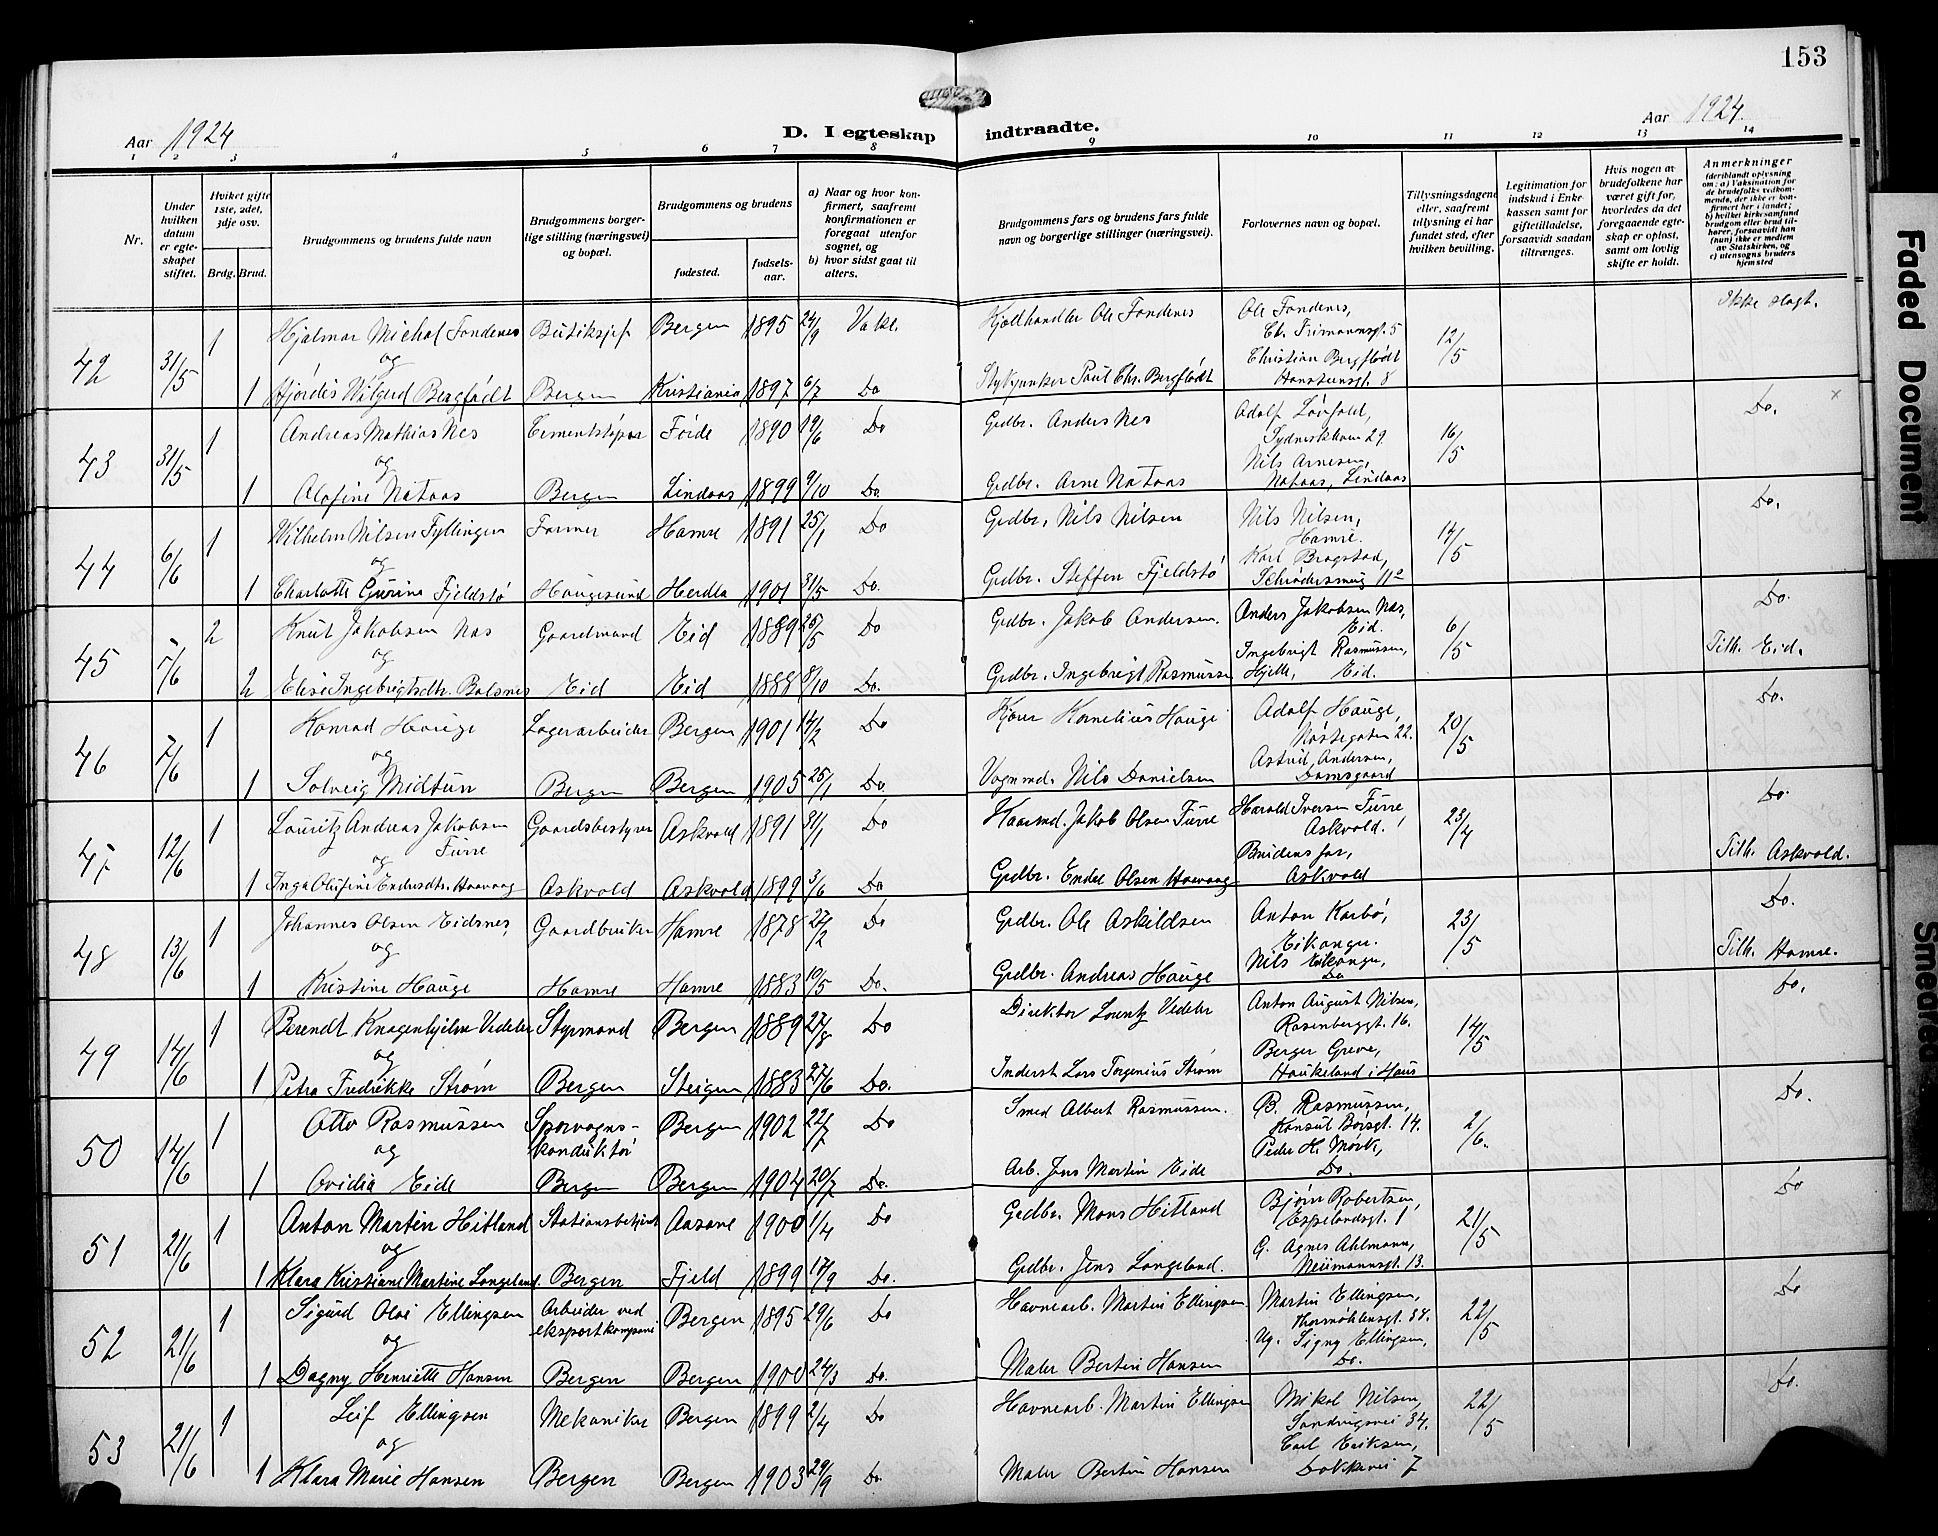 153
Aar 1924
D. I egteskap indtraadte.
Aar 1924.
1 2 3 4 5 6 7 8 9 10 11 12 13 14
Nr.
Under hvilken datum er egteskapet stiftet.
Hvilket gifte 1ste, 2det, 3dje osv.
Brdg. Brud.
Brudgommens og brudens fulde navn
Brudgommens borgerlige stilling (næringsvei) og bopæl.
Brudgommens og brudens
fødested.
fødselsaar.
a) Naar og hvor konfirmert, saafremt konfirmationen er foregaat utenfor sognet, og
b) hvor sidst gaat til alters.
Brudgommens fars og brudens fars fulde navn og borgerlige stillinger (næringsvei).
Forlovernes navn og bopæl.
Tillysningsdagene eller, saafremt tillysning ei har fundet sted, efter hvilken bevilling.
Legitimation for indskud i Enkekassen samt for giftetilladelse, forsaavidt saadan tiltrænges.
Hvis nogen av brudefolkene har været gift før, hvorledes da det foregaaende egteskap er opløst, samt om lovlig skifte er holdt.
Anmerkninger
(deriblandt oplysning om: a) Vaksination for de brudefolks vedkommende, der ikke er konfirmert her i landet; b) hvilket kirkesamfund brudgom eller brud tilhører, forsaavidt han (hun) ikke er medlem av Statskirken, og c) utensogns bruders hjemsted
42 31/5 1 Hjalmar Michal Fondenes Butikssjef Bergen 1895 24/9 Vakc. Kjøtthandler Ole Fondenes Ole Fondenes, 12/5 Ikke slegt.
og Christian Bergflødt
1 Hjørdis Wilgerd Bergflødt Bergen Kristiania 1897 6/7 Do Paul Chr. Bergflødt
43 31/5 1 Andreas Mathias Nes Cementstøper Førde 1890 19/6 Do Grdbr. Anders Nes Adolf 16/5 Do.
og Nils Arnesen,
1 Olofine Nataas Bergen Lindaas 1899 9/10 Do. Grdbr. Arne Nataas Nataas, Lindaas
44 6/6 1 Wilhelm Nilsen Fyllingen Former Hamre 1891 25/1 Do Grdbr. Nils Nilsen Nils Nilsen, 14/5 Do.
Hamre.
og Karl Bragstad,
1 Charlotte Gurine Fjeldstø Haugesund Herdla 1901 31/5 Do. Grdbr. Steffen Fjeldstø
45 7/6 2 Knut Jakobsen Nas Gaardmand Eid 1889 25/5 Do Grdbr. Jakob Andersen. Anders Jakobsen Nas, 6/5 Do.
Eid.
og Ingebrigt Rasmussen, Tilh. Eid.
2 Elise Ingebrigtsdtr. Bolsnes Eid Eid 1888 8/10 Do. Grdbr. Ingebrigt Rasmussen Hjelle, Eid.
46 7/6 1 Konrad Hauge Lagerarbeider Bergen 1901 14/2 Do Kjører Kornelius Hauge Adolf Hauge, 20/5 Do.
Nøstegaten 22.
og Astrid Andersen,
1 Solveig Midtun Bergen Bergen 1905 25/1 Do. Vognmd. Nils Danielsen Damsgaard
47 12/6 1 Lauritz Andreas Jakobsen Furre Gaardsbestyrer Askvold 1891 31/1 Do Jakob Olsen Furre Harald Iversen Furre 23/4 Do.
Askvold.
og Brudens far, Tilh. Askvold.
1 Inga Olufine Endresdtr. Haavaag Askvold Askvold 1899 3/6 Do Grdbr. Endre Olsen Haavaag Askvold
48 13/6 1 Johannes Olsen Eidsnes, Gaardbruker Hamre 1878 22/2 Do Grdbr. Ole Askildsen Anton Karbø, 23/5 Do.
Eikanger.
og Nils Eikanger, Tilh. Hamre.
1 Kristine Hauge Hamre Hamre 1883 10/5 Do. Grdbr. Andreas Hauge Do
49 14/6 1 Berendt Knagenhjelm Vedeler Styrmand Bergen 1889 27/8 Do Direktør Lorentz Vedeler Anton August Nilsen, 14/5 Do.
Rosenberggt. 16.
og Berger Greve,
1 Petra Fredrikke Strøm Bergen Steigen 1883 27/6 Do. Inderst Lars Torgenius Strøm Haukeland i Haus
50 14/6 1 Otto Rasmussen Sporvogns-konduktør Bergen 1902 22/7 Do Smed Albert Rasmussen. B. Rasmussen, 2/6. Do.
Konsul Børsgt. 14.
og Peder H. Mørk,
1 Ovidia Eide Bergen Bergen 1904 20/7 Do. Arb. Jens Martin Eide Do.
51 21/6 1 Anton Martin Hitland Stationsbetjent Aasane 1900 1/4 Do Grdbr. Mons Hitland Bjørn Robertsen 21/5 Do
Espelandsgt. 1
og G. Agnes Ahlmann,
1 Klara Kristiane Martine Langeland Bergen Fjeld 1899 17/9 Do. Grdbr. Jens Langeland. Neumannsgt. 13.
52 21/6 1 Sigurd Olai Ellingsen Arbeider ved eksportkompani Bergen 1895 29/6 Do Havnearb. Martin Ellingsen Martin Ellingsen, 22/5 Do
Thormøhlensgt. 38.
og Ug. Signy Ellingsen,
1 Dagny Henriette Hansen Bergen Bergen 1900 24/3 Do. Maler Bertin Hansen Do.
53 21/6 1 Leif Ellingsen Mekaniker Bergen 1899 2/4 Do Havnearb. Martin Ellingsen Mikal Nilsen, 22/5 Do.
Sandvigsvei 34.
og Carl Eriksen,
1 Klara Marie Hansen Bergen Bergen 1903 29/9 Do. Maler Bertin Hansen Dokkevei 7
Faded Document
Smeared